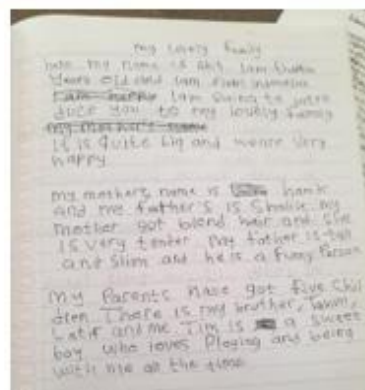 my lovely family
my name is I am
years old and I am from
I am happy I am going to intro
duce you to my lovely family
my mother's name
It is quite big and we are very
happy
my mothers name is
And me father's is my
mother got blond hair and she
is very my father is tall
and slim and he is a funny Person
My Parents have got five chil
dren. There is my brother,
Latif and me. Tim is a sweet
boy who loves Playing and being
with me all the time